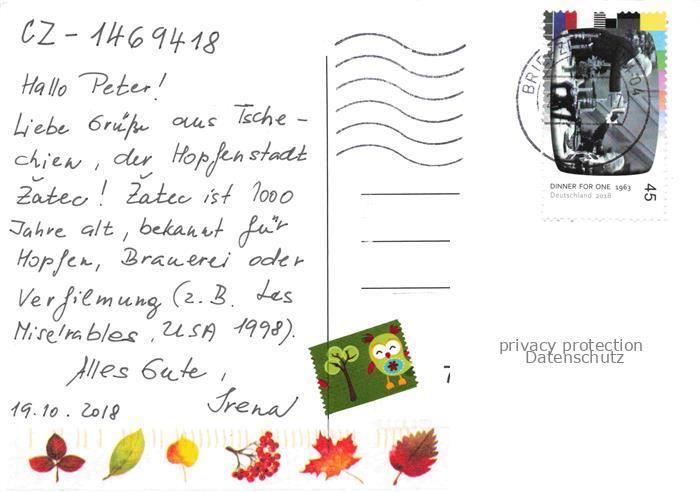 CZ-1469418
Hallo Peter!
Liebe Grüße aus Tsche-
chien, der Hopfenstadt
Žatec! Žatec ist 1000
Jahre alt, bekannt für
Hopfen, Brauerei oder
Verfilmung (z.B. Les
Misérables, USA 1998).
Alles Gute,
Irena
19.10.2018
DINNER FOR ONE 1963
Deutschland 2018
45
privacy protection
Datenschutz